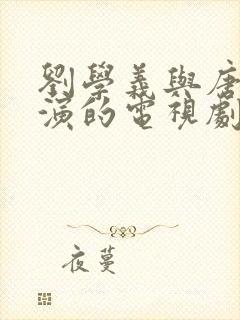 劉學義與唐
演的電視劇
夜蔓